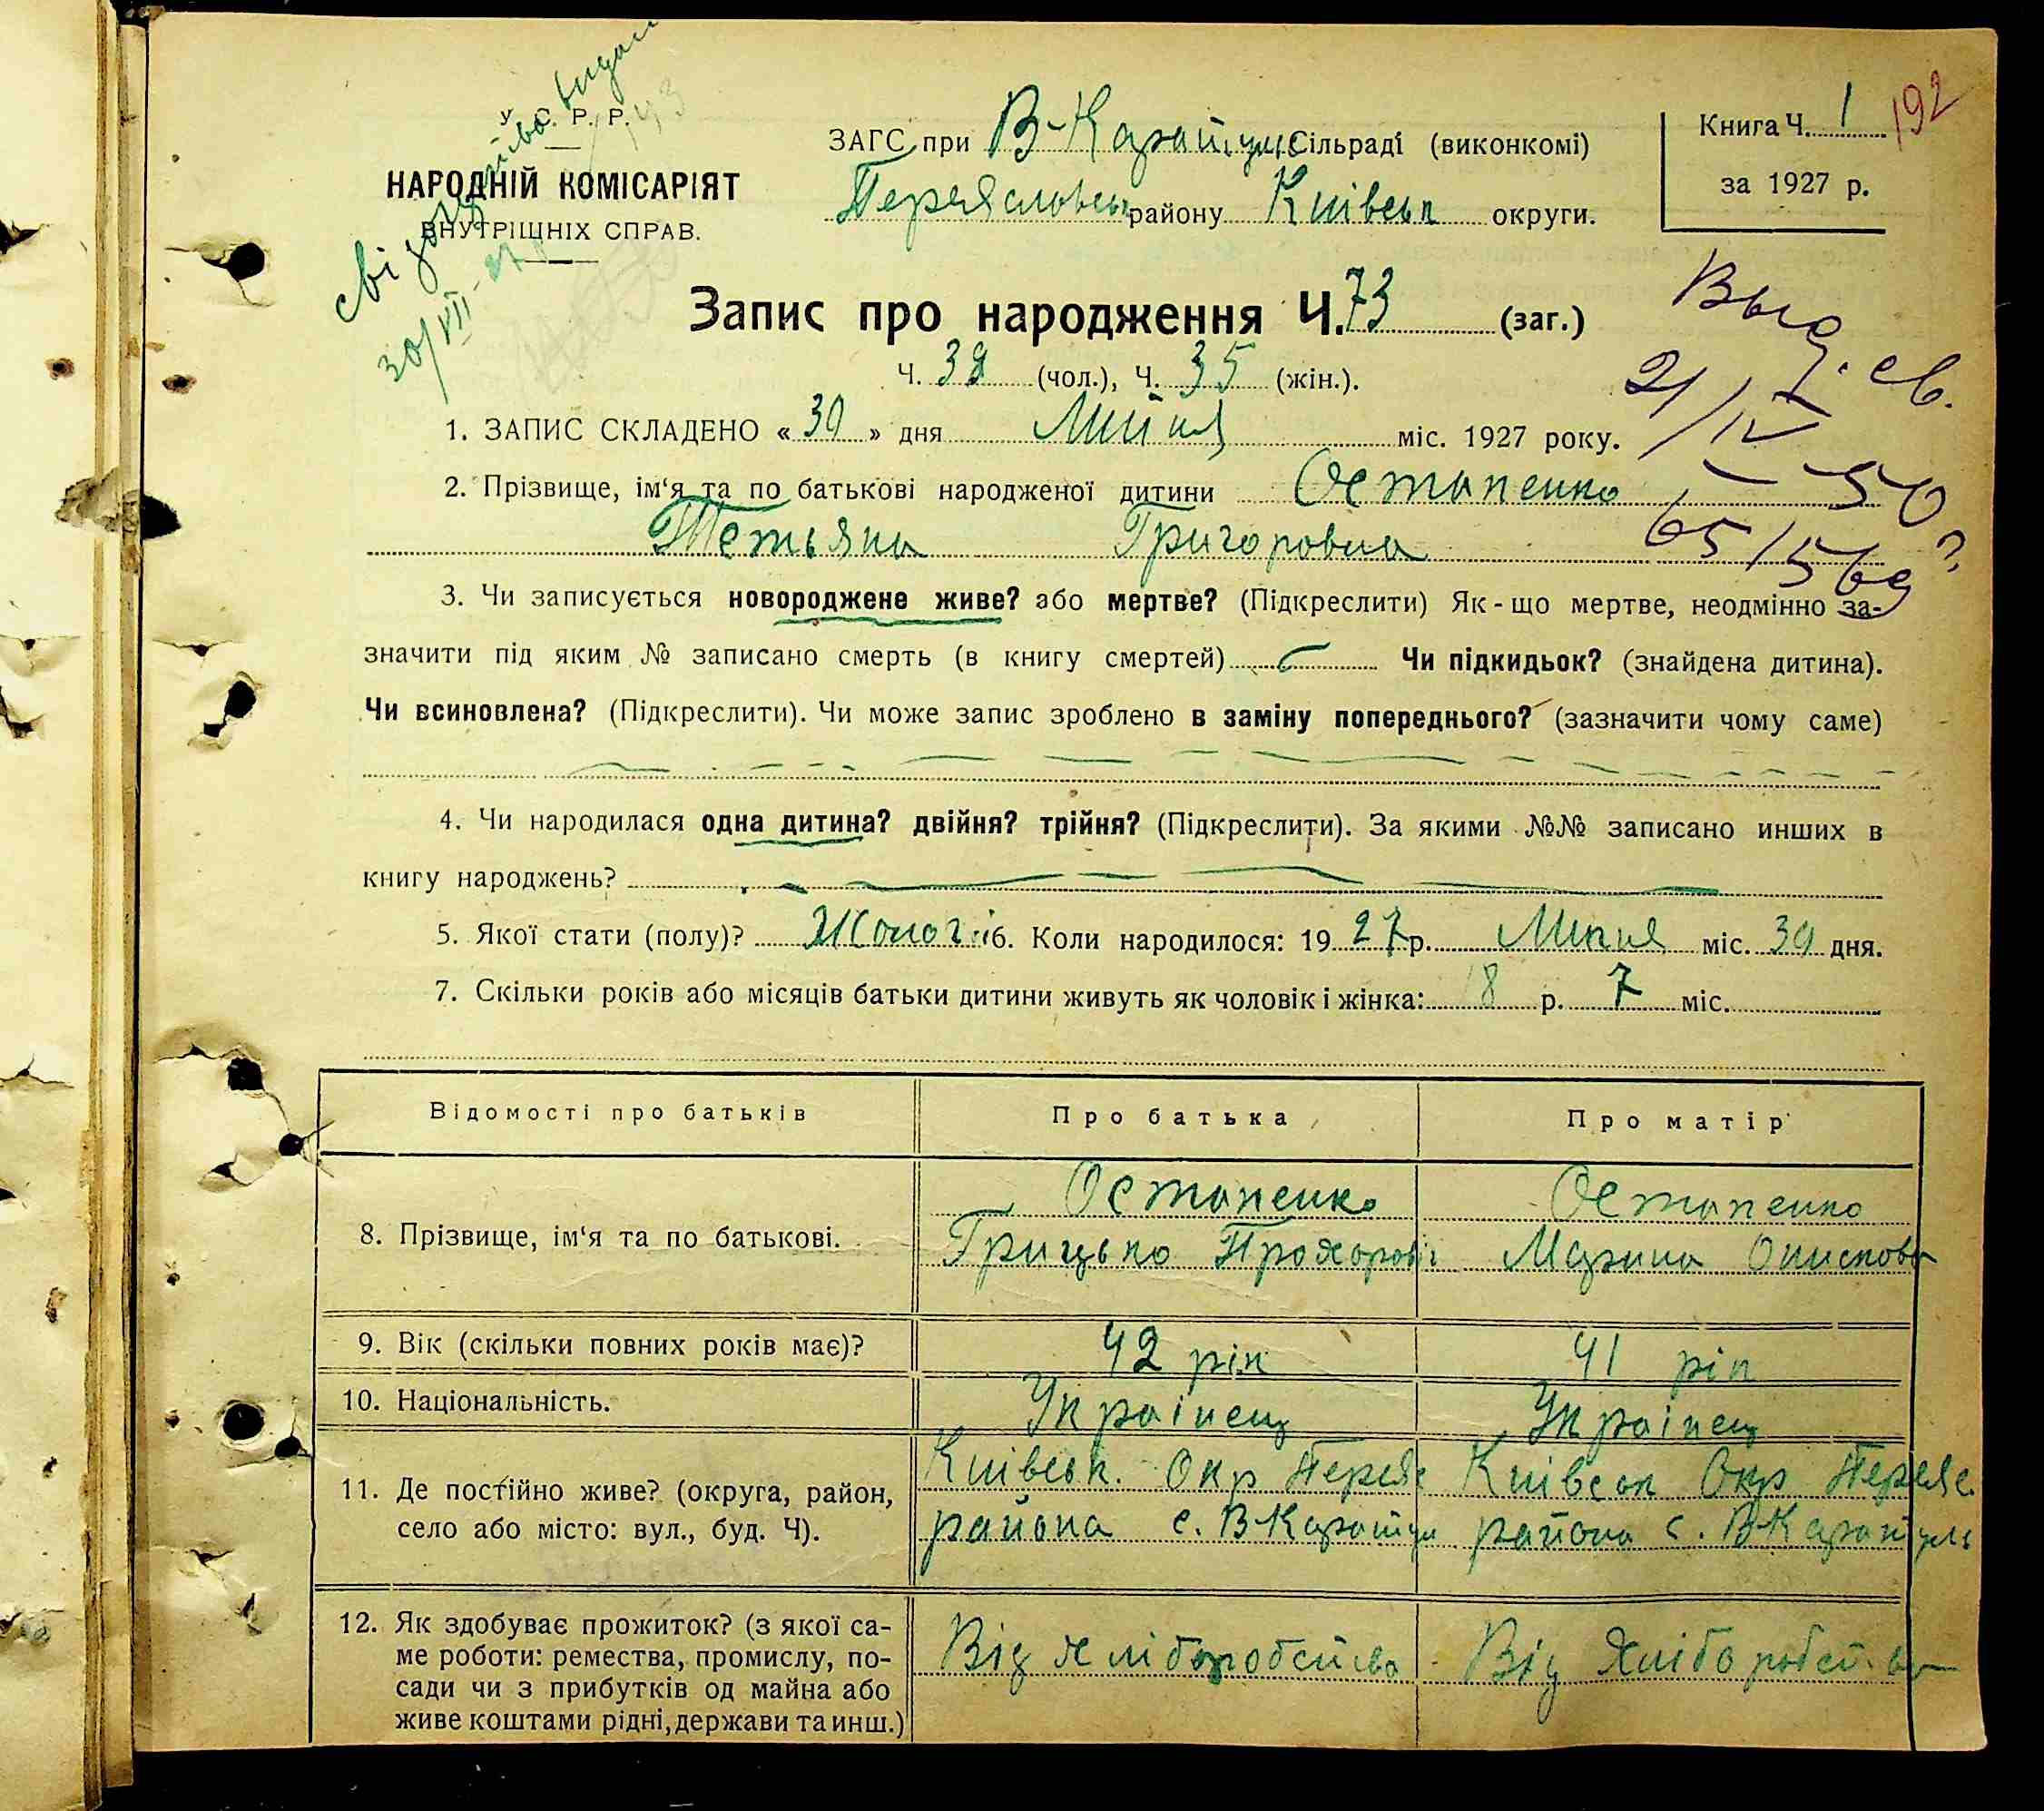 У. С. Р. Р.
НАРОДНІЙ КОМІСАРІЯТ
ВНУТРІШНІХ СПРАВ.
свідоцтво видан
30/VII-27
ЗАГС при В-Каратул Сільраді (виконкомі)
Переяславськ району Київськ округи.
Книга Ч. 1
за 1927 р.
192
Запис про народження Ч. 73 (заг.)
Ч. 38 (чол.), Ч. 35 (жін.).
Выд. св.
21/IV-50
1. ЗАПИС СКЛАДЕНО « 30 » дня міс. 1927 року.
2. Прізвище, ім‘я та по батькові народженої дитини Остапенко
Тетьяна Григоровна
3. Чи записується новороджене живе? або мертве? (Підкреслити) Як-що мертве, неодмінно за-
значити під яким № записано смерть (в книгу смертей) Чи підкидьок? (знайдена дитина).
Чи всиновлена? (Підкреслити). Чи може запис зроблено в заміну попереднього? (зазначити чому саме)
4. Чи народилася одна дитина? двійня? трійня? (Підкреслити). За якими №№ записано инших в
книгу народжень?
5. Якої стати (полу)? 6. Коли народилось: 1927 р. міс. 30 дня.
7. Скільки років або місяців батьки дитини живуть як чоловік і жінка: 18 р. 7 міс.
Відомості про батьків Про батька Про матір
8. Прізвище, ім‘я та по батькові. Остапенко Остапенко
Грицько Прохорові Марина Онискова
9. Вік (скільки повних років має)? 42 рік 41 рік
10. Національність. Українец Українец
11. Де постійно живе? (округа, район, село або місто: вул., буд. Ч). Київськ. Окр Переяс Київськ Окр Переяс.
района с. В-Каратул района с. В-Каратуль
12. Як здобуває прожиток? (з якої са-
ме роботи: ремества, промислу, по-
сади чи з прибутків од майна або
живе коштами рідні, держави та инш.)
Від хліборобства Від хліборобства